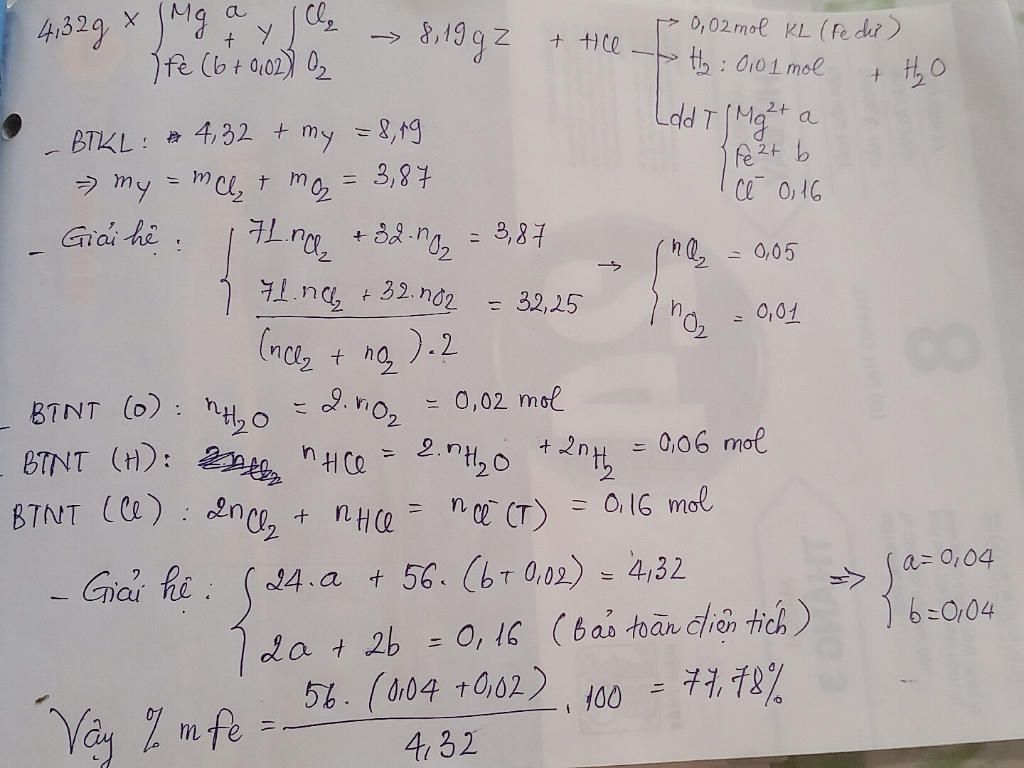 4,32g X { Mg a + Fe (b + 0,02) Y { Cl₂ O₂ → 8,19g Z + HCl → 0,02 mol KL (Fe dư)
→ H₂ : 0,01 mol + H₂O
dd T { Mg²⁺ a
Fe²⁺ b
Cl⁻ 0,16
- BTKL : 4,32 + mY = 8,19
⇒ mY = mCl₂ + mO₂ = 3,87
- Giải hệ : { 71.nCl₂ + 32.nO₂ = 3,87 → { nCl₂ = 0,05
(71.nCl₂ + 32.nO₂) / ((nCl₂ + nO₂).2) = 32,25 nO₂ = 0,01
- BTNT (O) : nH₂O = 2.nO₂ = 0,02 mol
- BTNT (H) : nHCl = 2.nH₂O + 2nH₂ = 0,06 mol
BTNT (Cl) : 2nCl₂ + nHCl = nCl⁻(T) = 0,16 mol
- Giải hệ : { 24.a + 56.(b + 0,02) = 4,32 ⇒ { a = 0,04
2a + 2b = 0,16 (Bảo toàn điện tích) b = 0,04
Vậy % mFe = 56.(0,04 + 0,02) / 4,32 . 100 = 77,78%